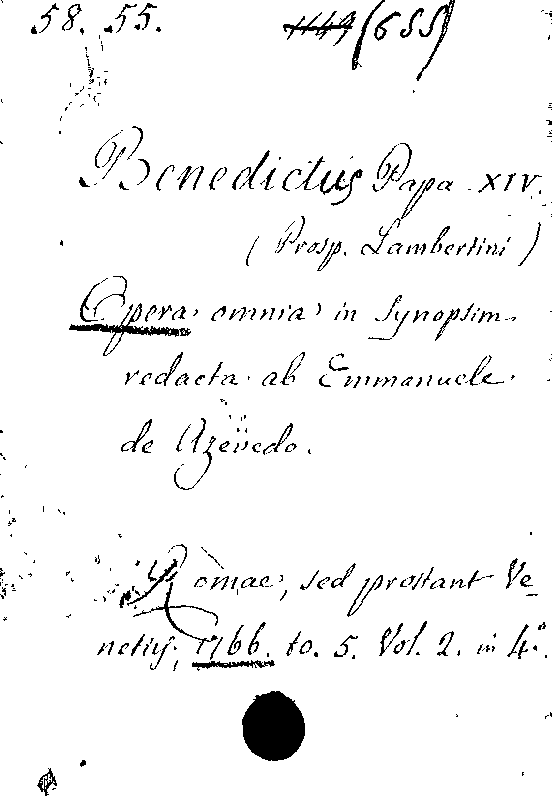 58. 55. 1149 (655)
Benedictus Papa XIV.
(Prosp. Lambertini)
Opera omnia in Synopsim
redacta ab Emmanuele
de Azevedo.
Romae, sed prostant Ve-
netiis, 1766. to. 5. Vol. 2. in 4.º